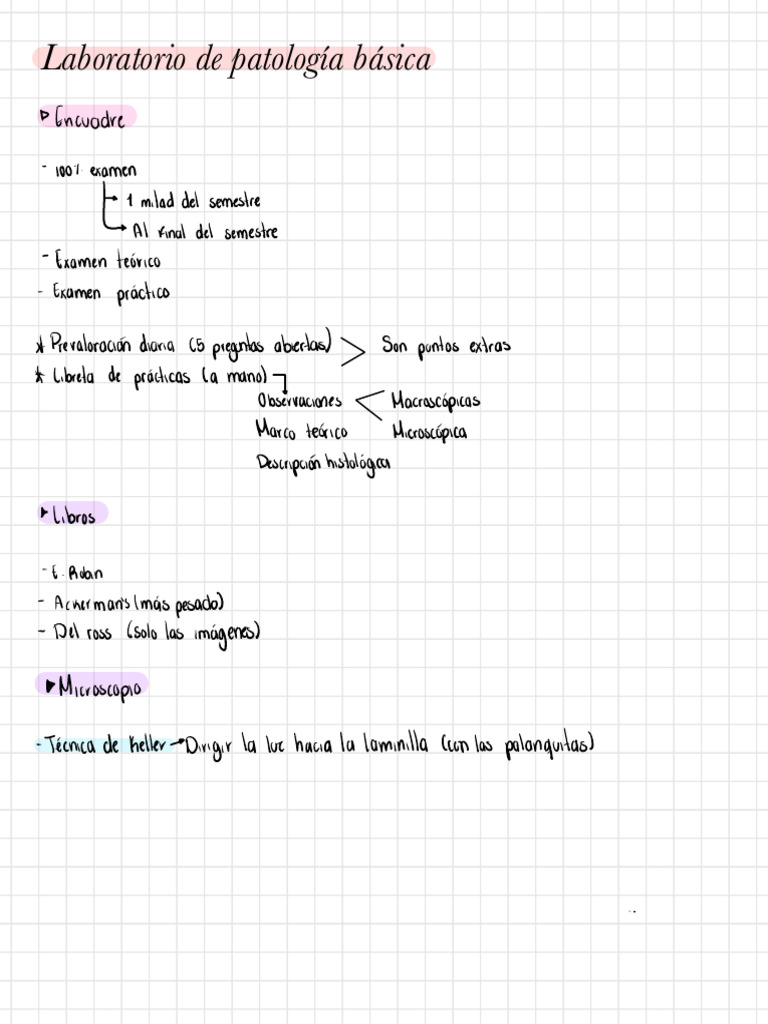 Laboratorio de patología básica
▷ Encuadre
- 100% examen
→ 1 mitad del semestre
→ Al final del semestre
- Examen teórico
- Examen práctico
* Prevaloración diaria (5 preguntas abiertas) > Son puntos extras
* Libreta de prácticas (a mano)
Observaciones < Macroscópicas
Marco teórico Microscópica
Descripción histológica
▶ Libros
- E. Roban
- Ackerman's (más pesado)
- Del ross (solo las imágenes)
▶ Microscopio
- Técnica de Keller → Dirigir la luz hacia la laminilla (con las palanquitas)